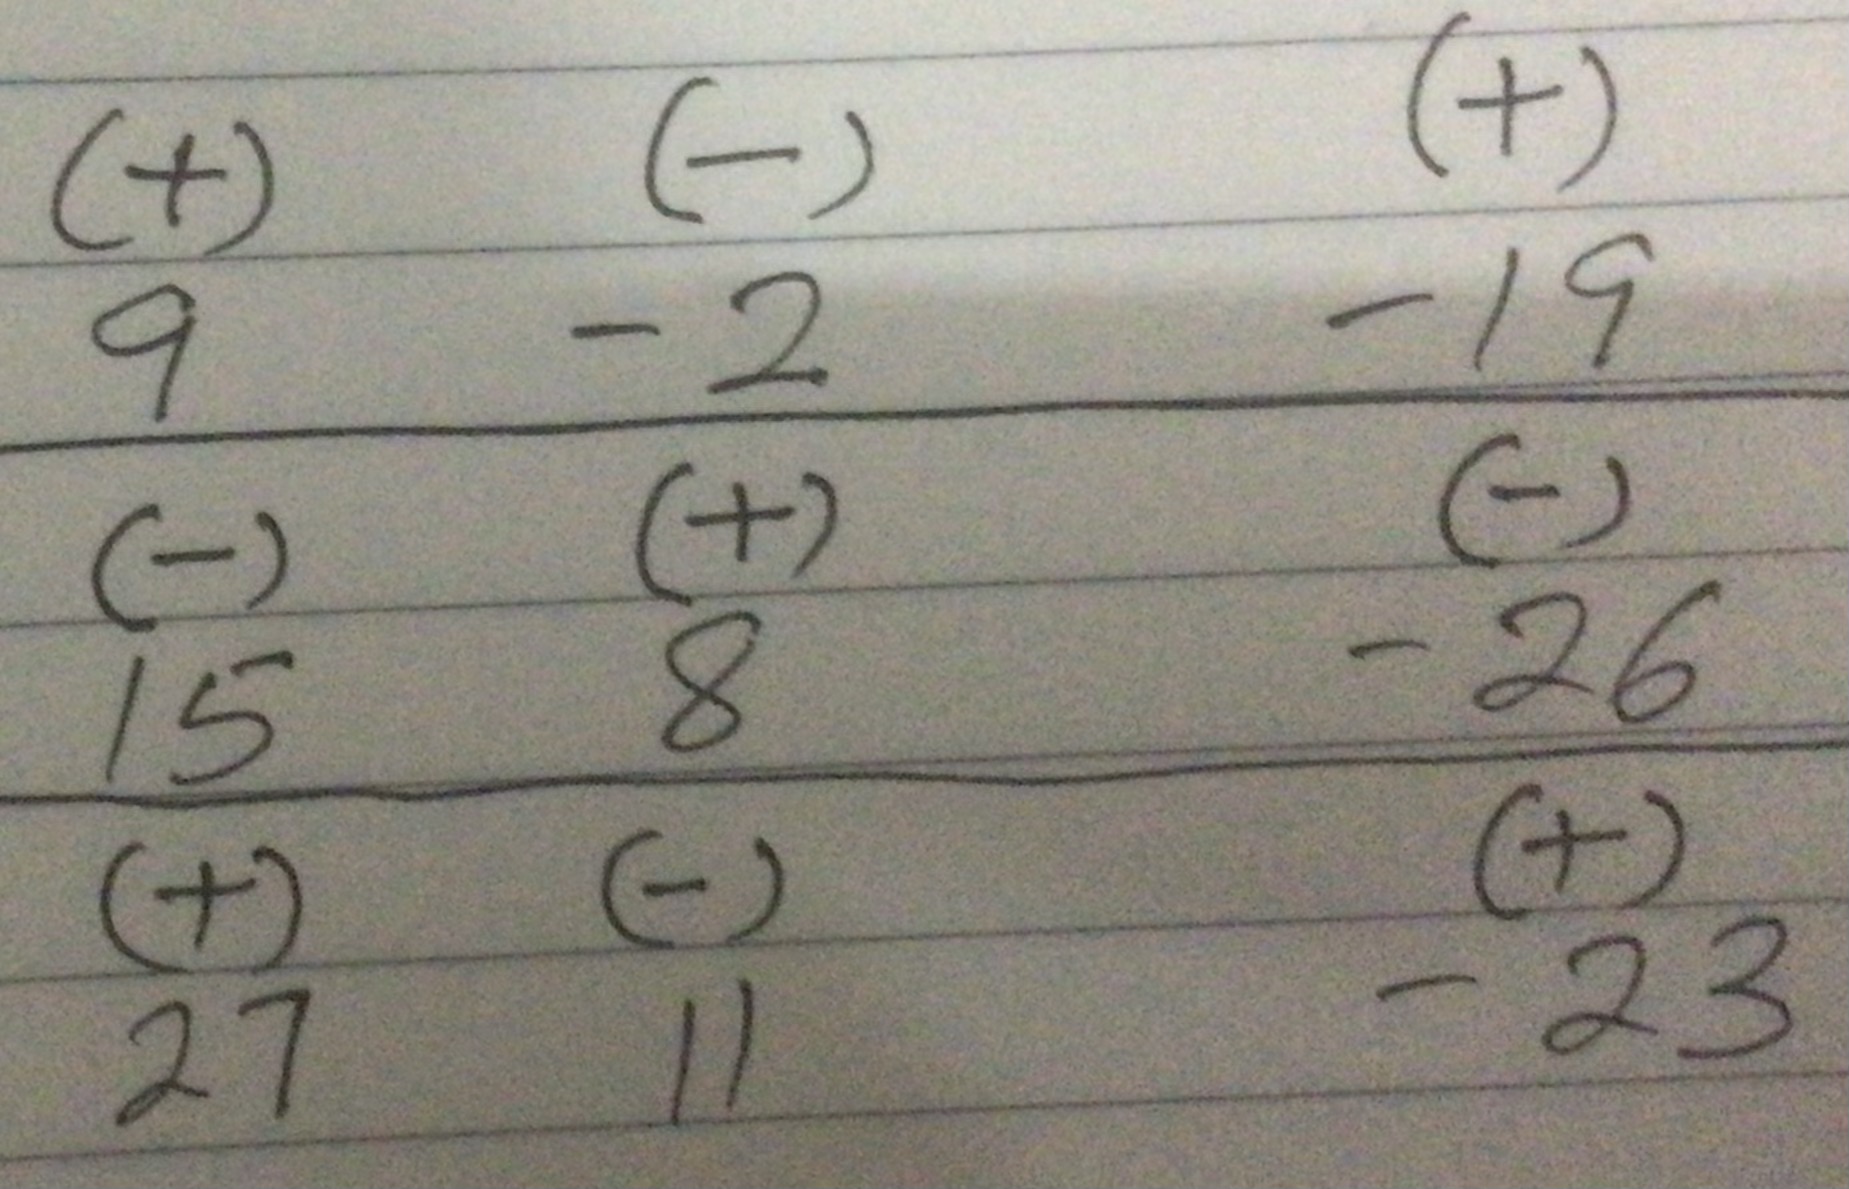 (+) (-) (+)
9 -2 -19
(-) (+) (-)
15 8 -26
(+) (-) (+)
27 11 -23